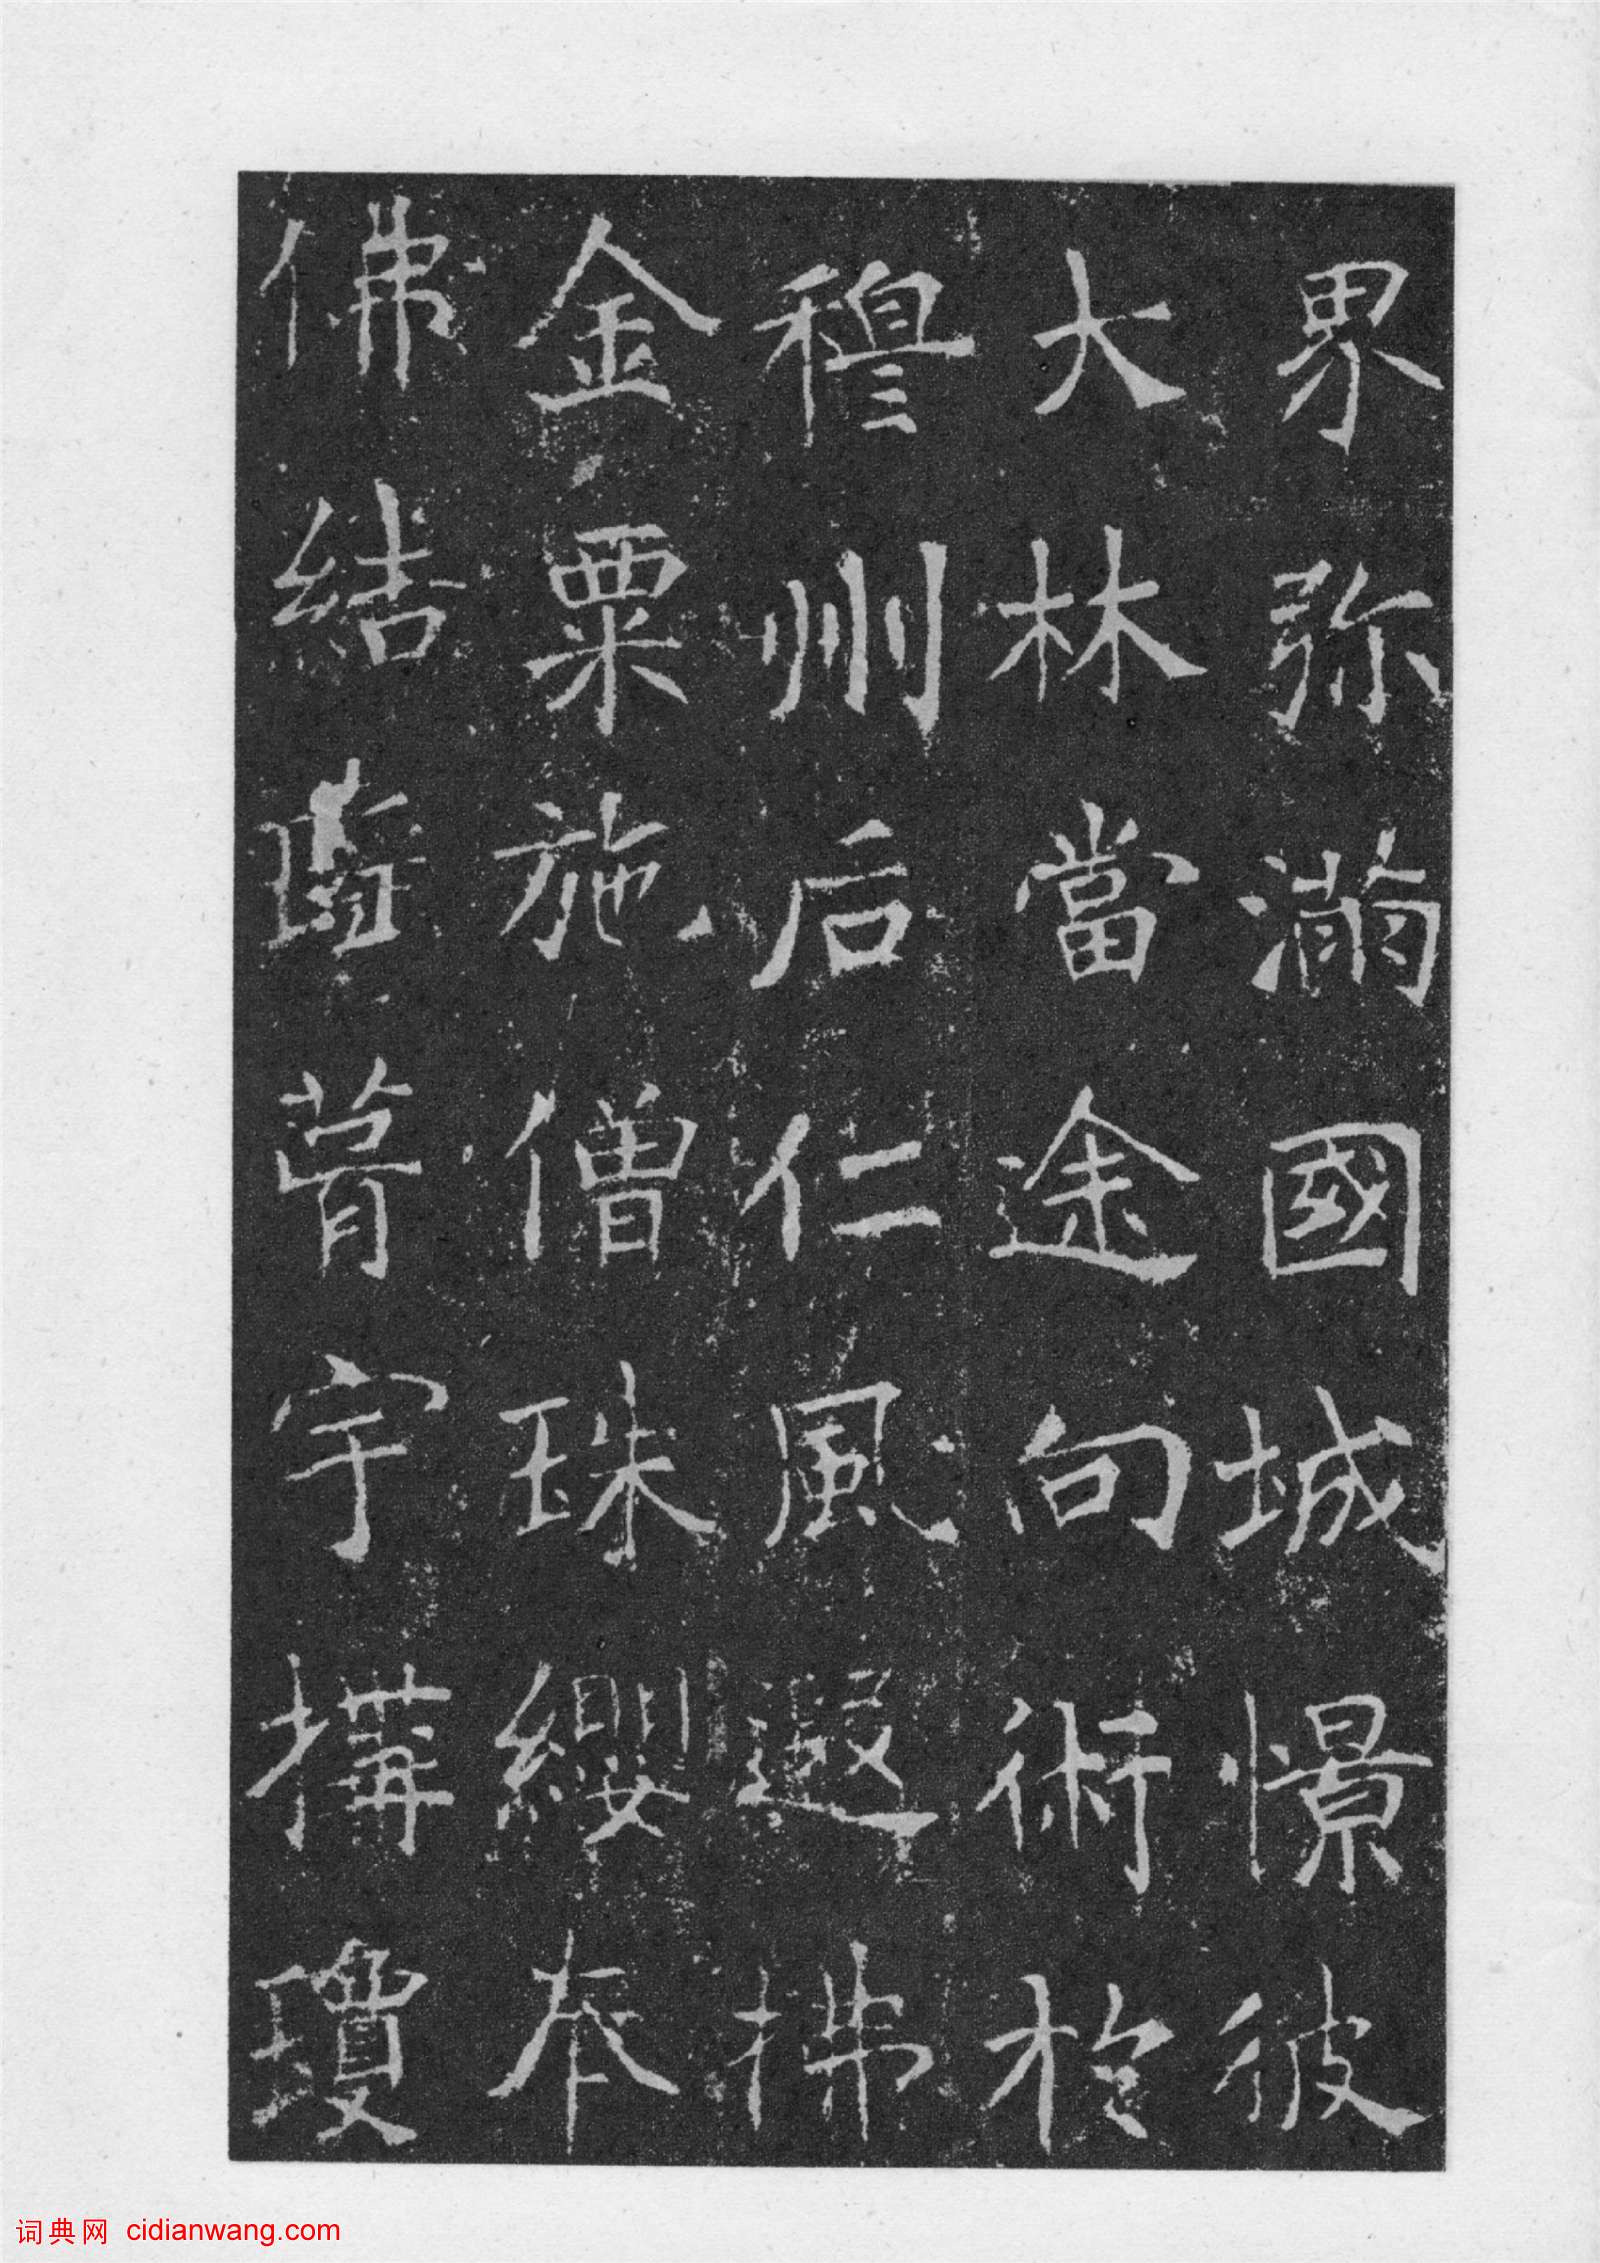 界弥滿國城憬彼
大林當途向術扵
穆州后仁風遐拂
金粟施僧珠纓奉
佛結宇搆瓊
词典网 cidianwang.com